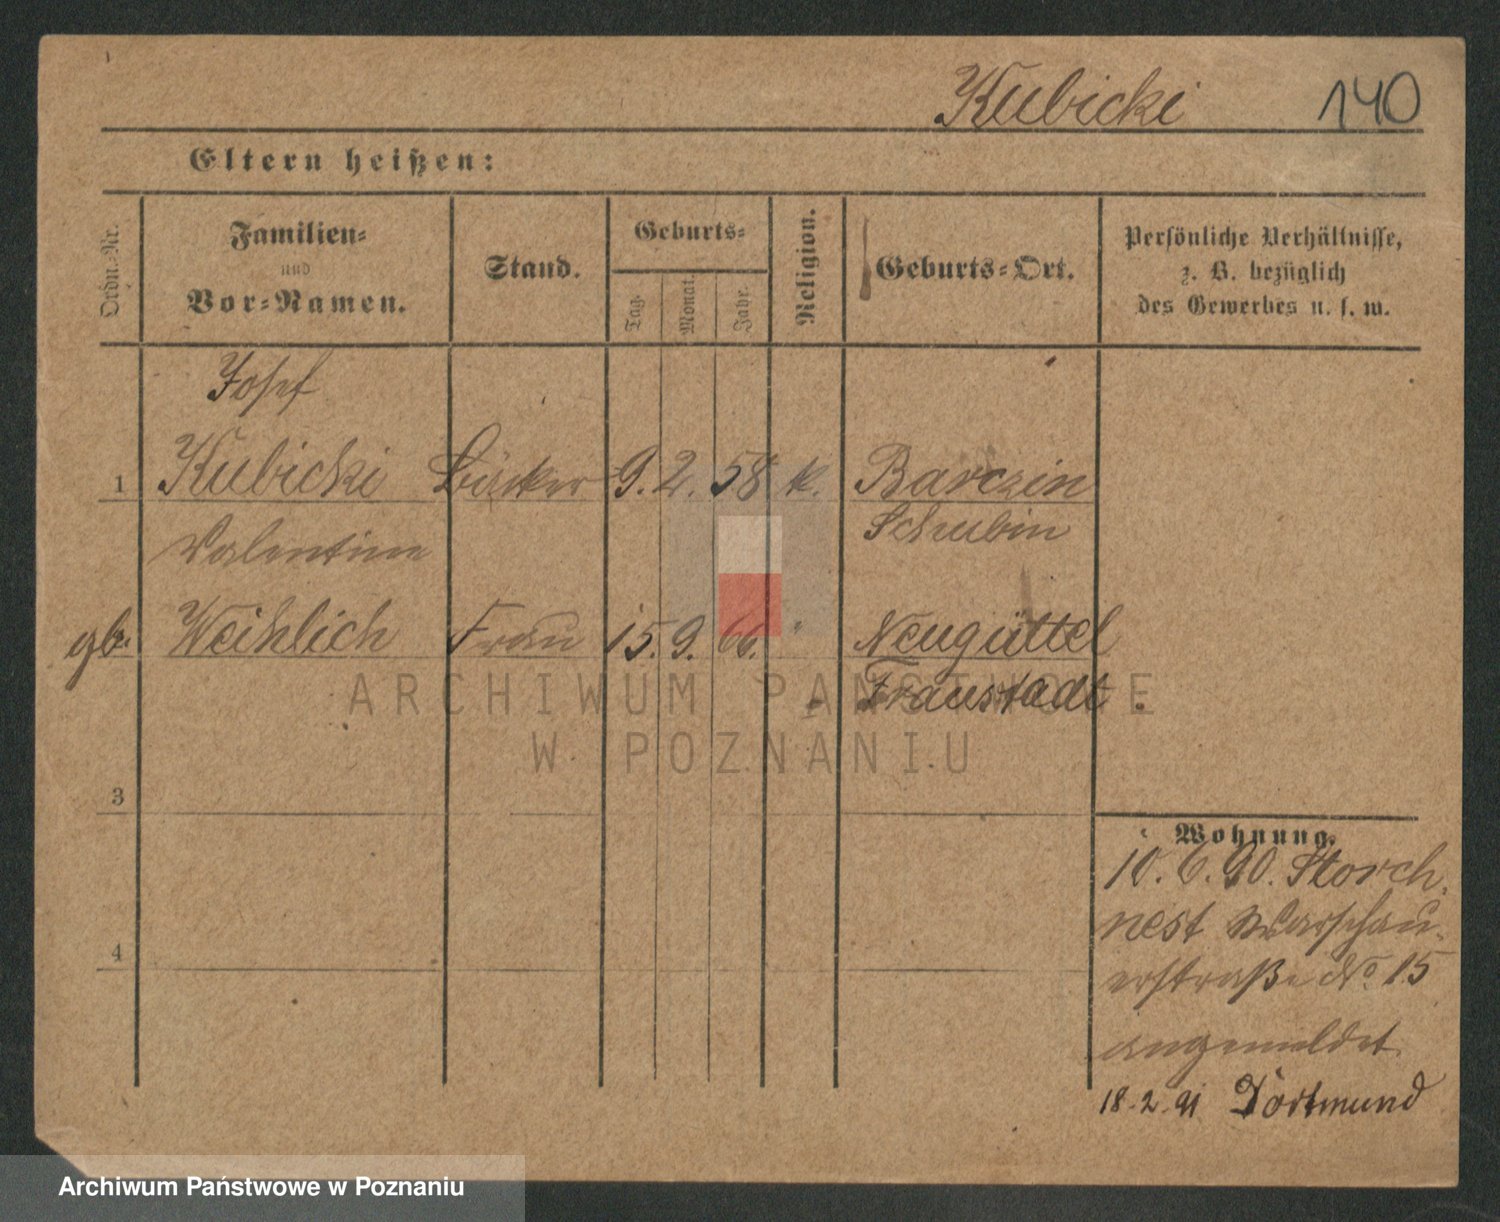 Kubicki 140
Eltern heißen:
Ordn.-Nr.
Familien-
und
Vor-Namen.
Stand.
Geburts-
Tag.
Monat.
Jahr.
Religion.
Geburts-Ort.
Persönliche Verhältnisse,
z. B. bezüglich
des Gewerbes u. s. w.
Josef
1 Kubicki Bäcker 9. 2. 58 k. Barczin
Schubin
Valentine
gb. Weihlich Frau 15. 9. 66. " Neugüttel
Fraustadt.
3
4
Wohnung.
10. 6. 90. Storch-
nest Warschau-
erstraße No 15
angemeldet.
18.2.91 Dortmund
ARCHIWUM PAŃSTWOWE
W POZNANIU
Archiwum Państwowe w Poznaniu